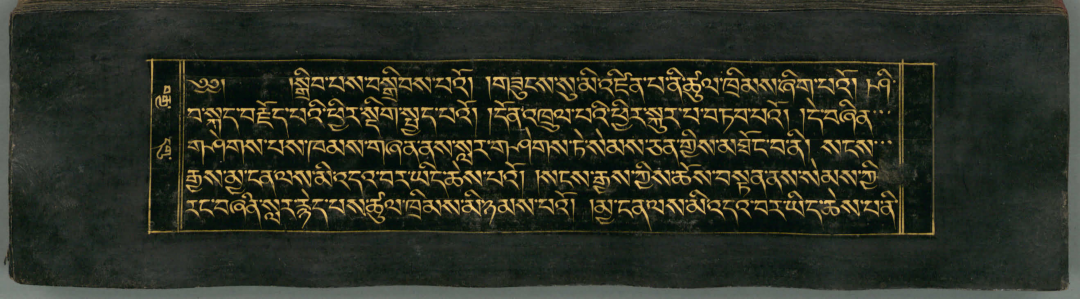 ༄༅། །སྒྲིབ་པས་བསྒྲིབས་པའོ། །གཟུངས་སུ་མི་འཛིན་པ་ནི་ཚུལ་ཁྲིམས་ཞིག་པའོ། །ཤི་
བ་སྐད་བརྗོད་པའི་ཕྱིར་སྡིག་སྤྱད་པའོ། །དོན་འཁྲུལ་པའི་ཕྱིར་སྐུར་པ་བཏབ་པའོ། །དེ་བཞིན་
གཤེགས་པས་ཁམས་གཞན་ནས་སླར་གཤེགས་ཏེ་སེམས་ཅན་གྱིས་མཐོང་བ་ནི། སངས་
རྒྱས་མྱ་ངན་ལས་མི་འདའ་བར་ཡིད་ཆེས་པའོ། །སངས་རྒྱས་ཀྱིས་ཆོས་བསྟན་ནས་སེམས་ཀྱི་
རང་བཞིན་སླར་རྙེད་པས་ཚུལ་ཁྲིམས་མི་ཉམས་པའོ། །མྱ་ངན་ལས་མི་འདའ་བར་ཡིད་ཆེས་པ་ནི་